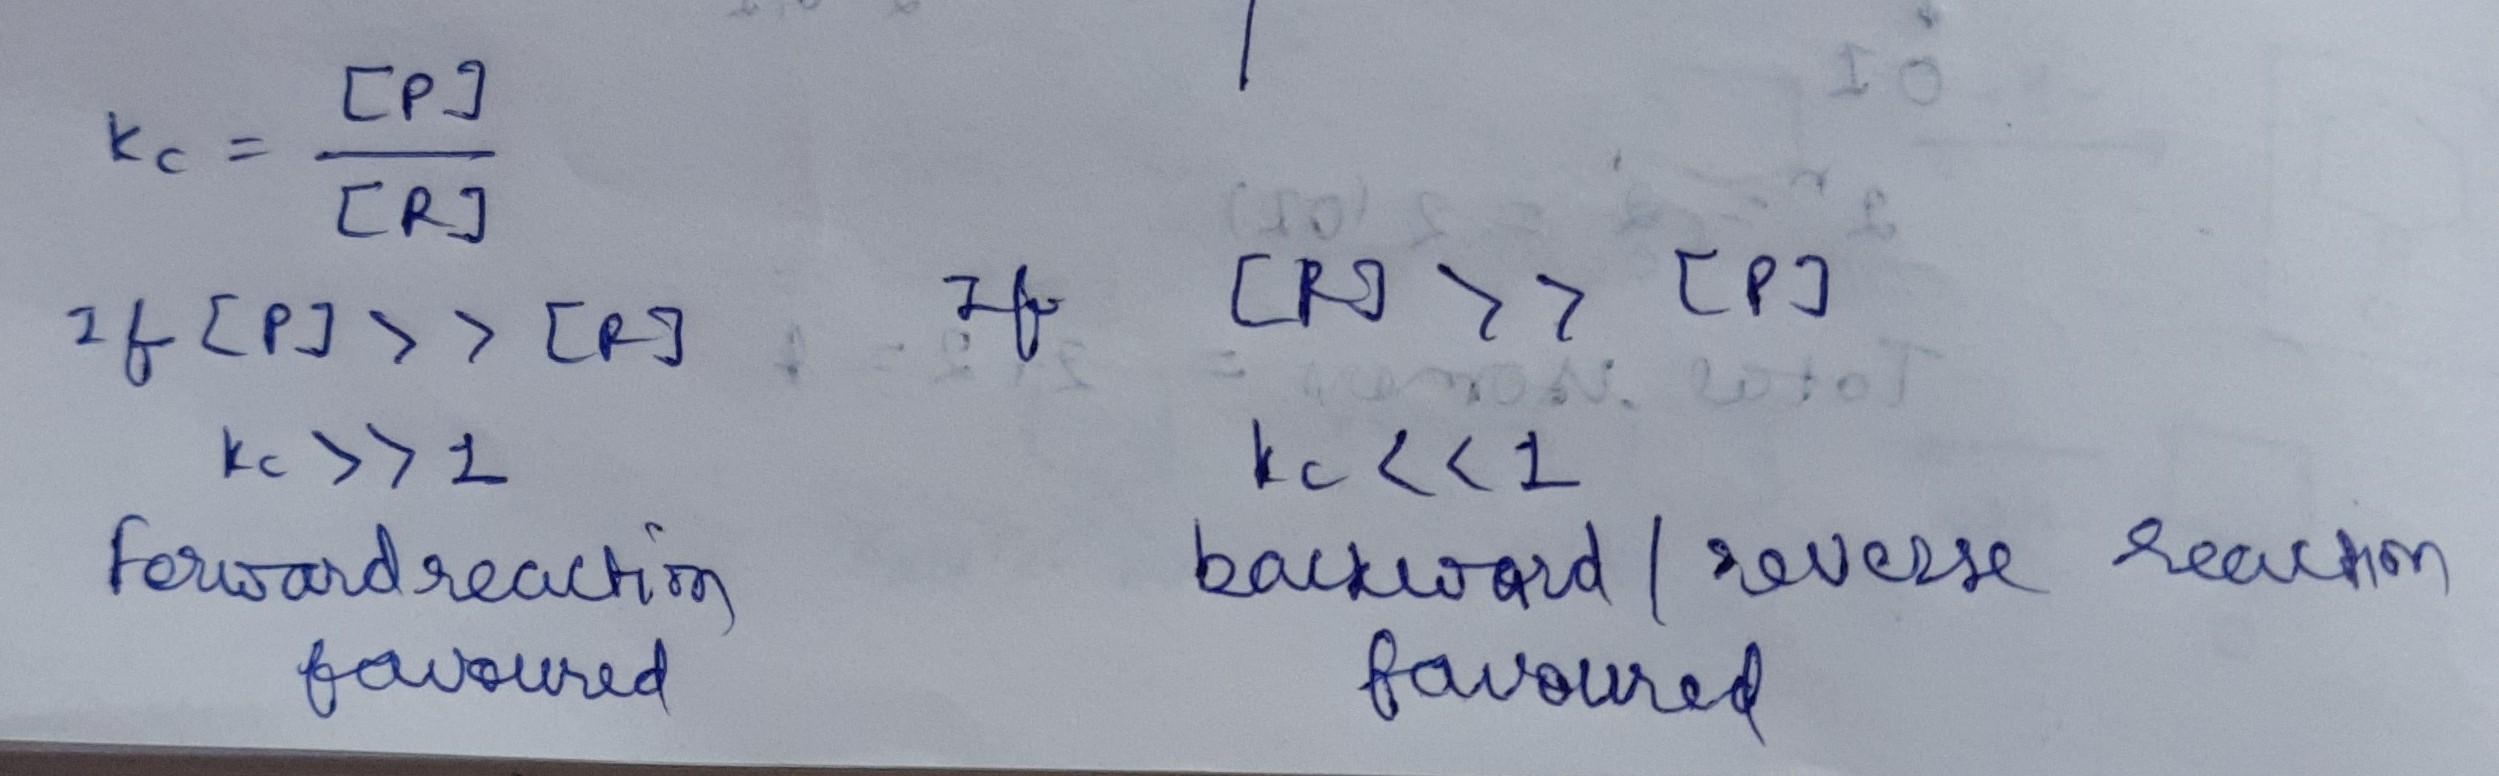 kc = [P]
[R]
If [P] >> [R]
kc >> 1
forward reaction
favoured
If [R] >> [P]
kc << 1
backward / reverse reaction
favoured